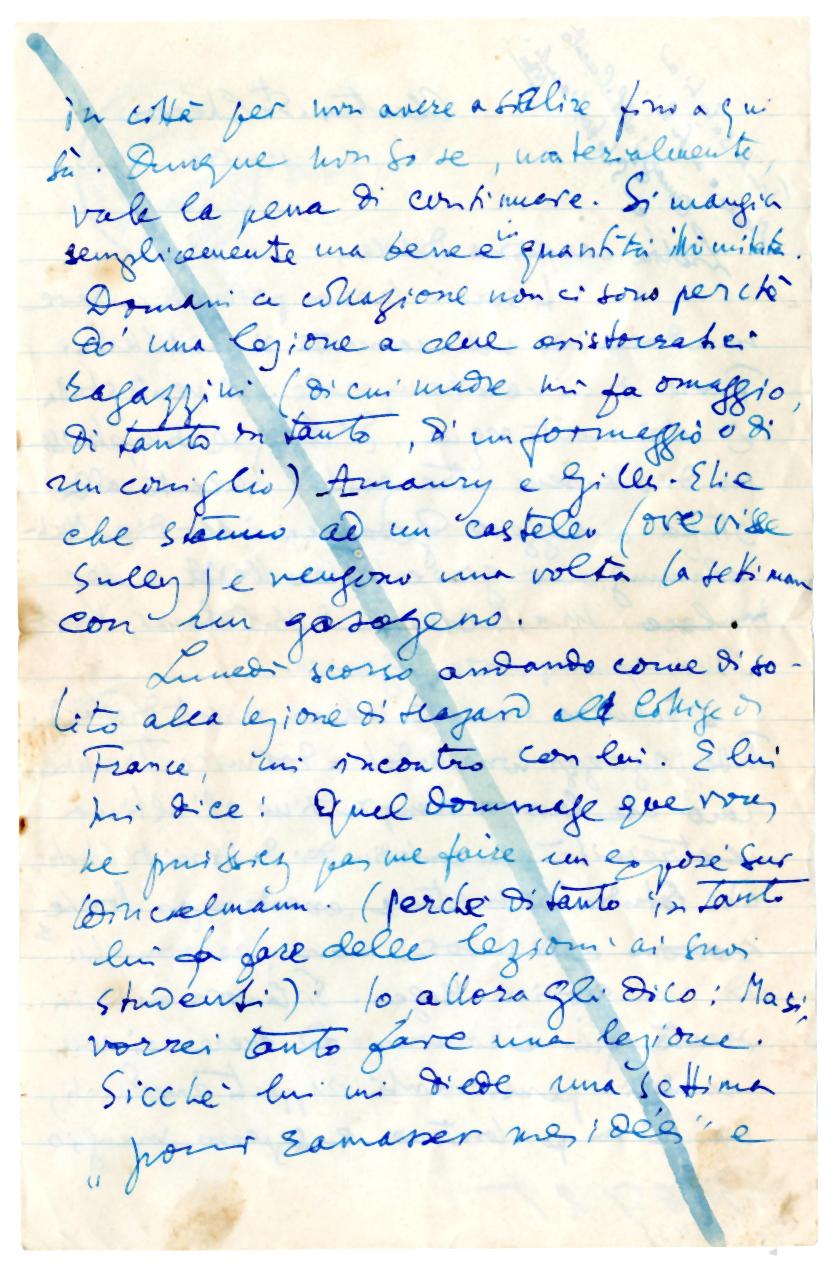 in città per non avere a salire fino a qui
sù. Dunque non so se, materialmente,
vale la pena di continuare. Si mangia
semplicemente ma bene e in quantità illimitata.
Domani a collazione non ci sono perchè
dò una lezione a due aristocratici
ragazzini (di cui madre mi fa omaggio,
di tanto in tanto, di un formaggio o di
un coniglio) Amaury e Gilles-Elie
che stanno ad un castello (ove visse
Sully) e vengono una volta la settimana
con un gasogeno.
Lunedì scorso andando come di so-
lito alla lezione di Hazard al Collège de
France, mi incontro con lui. E lui
mi dice: Quel dommage que vous
ne puissiez pas me faire un exposé sur
Winckelmann. (perchè di tanto in tanto
lui fa fare delle lezioni ai suoi
studenti). Io allora gli dico: Ma si,
vorrei tanto fare una lezione.
Sicchè lui mi diede una settimana
"pour ramasser mes idées" e